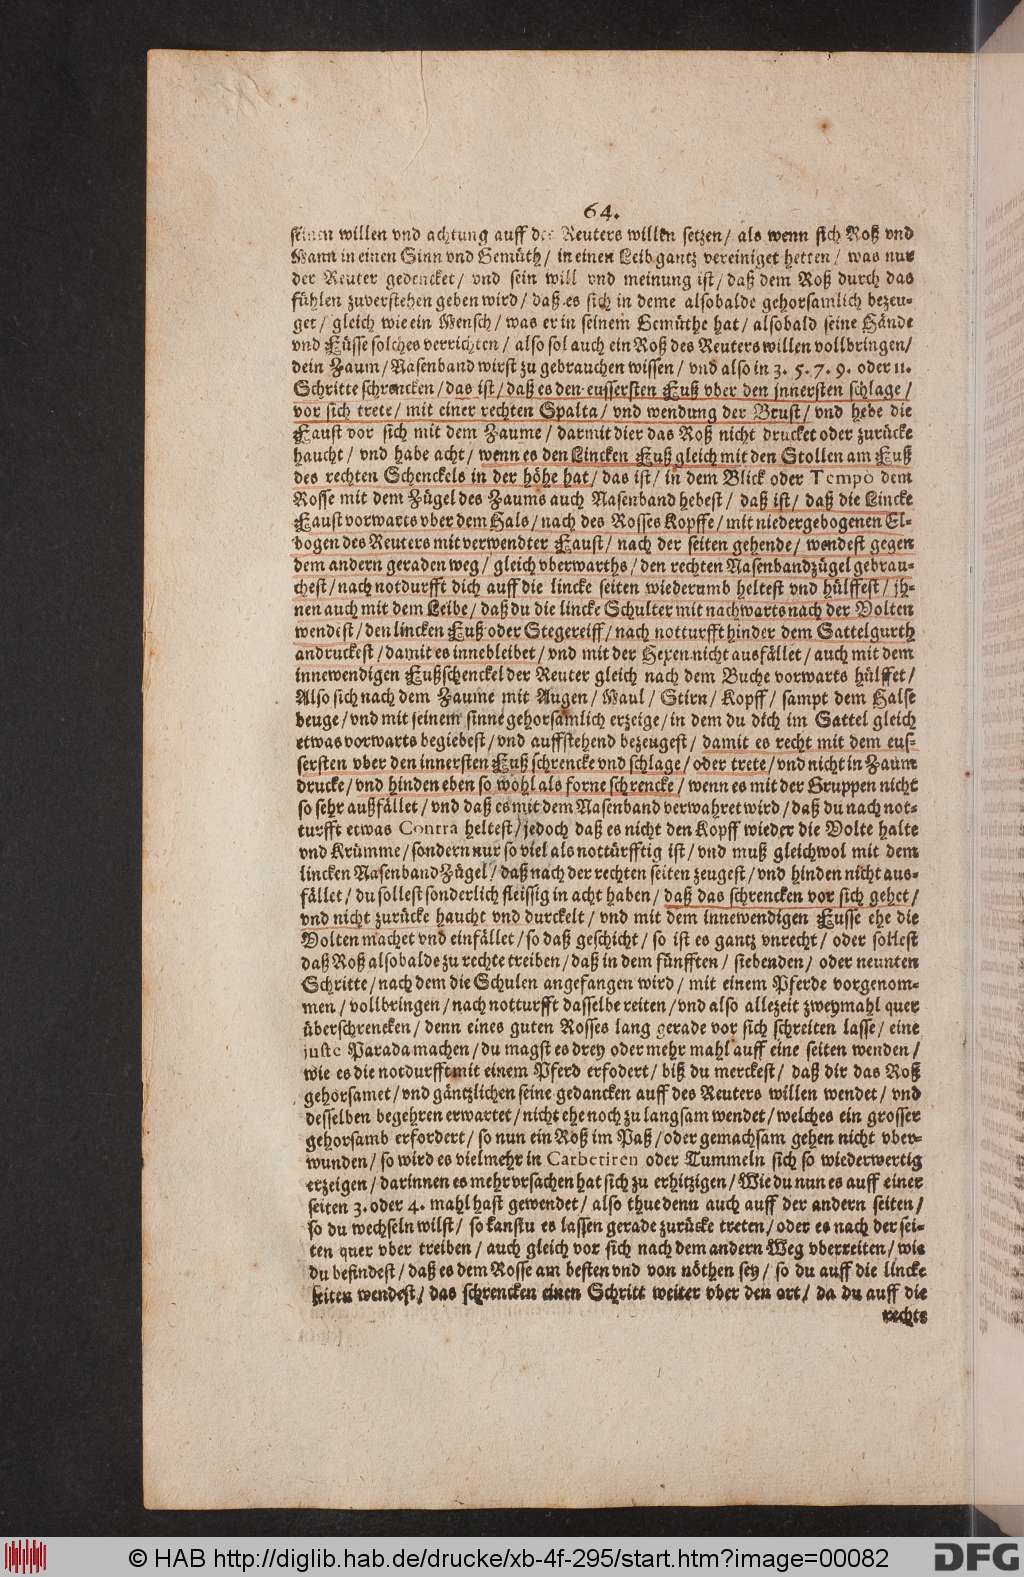 64.
seinen willen vnd achtung auff des Reuters willen setzen / als wenn sich Roß vnd
Mann in einen Sinn vnd Gemüth / in einen Leib gantz vereiniget hetten / was nur
der Reuter gedencket / vnd sein will vnd meinung ist / daß dem Roß durch das
fühlen zuverstehen geben wird / daß es sich in deme alsobalde gehorsamlich bezeu-
get / gleich wie ein Mensch / was er in seinem Gemüthe hat / alsobald seine Hände
vnd Füsse solches verrichten / also sol auch ein Roß des Reuters willen vollbringen /
dein Zaum / Nasenband wirst zu gebrauchen wissen / vnd also in 3. 5. 7. 9. oder 11.
Schritte schrencken / das ist / daß es den eussersten Fuß vber den jnnersten schlage /
vor sich trete / mit einer rechten Spalta / vnd wendung der Brust / vnd hebe die
Faust vor sich mit dem Zaume / darmit dier das Roß nicht drucket oder zurücke
haucht / vnd habe acht / wenn es den Lincken Fuß gleich mit den Stollen am Fuß
des rechten Schenckels in der höhe hat / das ist / in dem Blick oder Tempo dem
Rosse mit dem Zügel des Zaums auch Nasenband hebest / daß ist / daß die Lincke
Faust vorwarts vber dem Hals / nach des Rosses Kopffe / mit niedergebogenen El-
bogen des Reuters mit verwendter Faust / nach der seiten gehende / wendest gegen
dem andern geraden weg / gleich vberwarths / den rechten Nasenbandzügel gebrau-
chest / nach notdurfft dich auff die lincke seiten wiederumb heltest vnd hülffest / jh-
nen auch mit dem Leibe / daß du die lincke Schulter mit nachwarts nach der Volten
wendest / den lincken Fuß oder Stegereiff / nach notturfft hinder dem Sattelgurth
andruckest / damit es innebleibet / vnd mit der Hexen nicht ausfället / auch mit dem
innewendigen Fußschenckel der Reuter gleich nach dem Buche vorwarts hülffet /
Also sich nach dem Zaume mit Augen / Maul / Stirn / Kopff / sampt dem Halse
beuge / vnd mit seinem sinne gehorsamlich erzeige / in dem du dich im Sattel gleich
etwas vorwarts begiebest / vnd auffstehend bezeugest / damit es recht mit dem eus-
sersten vber den innersten Fuß schrencke vnd schlage / oder trete / vnd nicht in Zaum
drucke / vnd hinden eben so wohl als forne schrencke / wenn es mit der Gruppen nicht
so sehr außfället / vnd daß es mit dem Nasenband verwahret wird / daß du nach not-
turfft etwas Contra heltest / jedoch daß es nicht den Kopff wieder die Volte halte
vnd Krümme / sondern nur so viel als nottürfftig ist / vnd muß gleichwol mit dem
lincken Nasenband Zügel / daß nach der rechten seiten zeugest / vnd hinden nicht aus-
fället / du sollest sonderlich fleissig in acht haben / daß das schrencken vor sich gehet /
vnd nicht zurücke haucht vnd durckelt / vnd mit dem innewendigen Fusse ehe die
Volten machet vnd einfället / so daß geschicht / so ist es gantz vnrecht / oder sollest
daß Roß alsobalde zu rechte treiben / daß in dem fünfften / siebenden / oder neunten
Schritte / nach dem die Schulen angefangen wird / mit einem Pferde vorgenom-
men / vollbringen / nach notturfft dasselbe reiten / vnd also allezeit zweymahl quer
überschrencken / denn eines guten Rosses lang gerade vor sich schreiten lasse / eine
juste Parada machen / du magst es drey oder mehr mahl auff eine seiten wenden /
wie es die notdurfft mit einem Pferd erfodert / biß du merckest / daß dir das Roß
gehorsamet / vnd gäntzlichen seine gedancken auff des Reuters willen wendet / vnd
desselben begehren erwartet / nicht ehe noch zu langsam wendet / welches ein grosser
gehorsamb erfordert / so nun ein Roß im Paß / oder gemachsam gehen nicht vber-
wunden / so wird es vielmehr in Carbetiren oder Tummeln sich so wiederwertig
erzeigen / darinnen es mehr vrsachen hat sich zu erhitzigen / Wie du nun es auff einer
seiten 3. oder 4. mahl hast gewendet / also thue denn auch auff der andern seiten /
so du wechseln wilst / so kanstu es lassen gerade zurücke treten / oder es nach der sei-
ten quer vber treiben / auch gleich vor sich nach dem andern Weg vberreiten / wie
du befindest / daß es dem Rosse am besten vnd von nöthen sey / so du auff die lincke
seiten wendest / das schrencken einen Schritt weiter vber den ort / da du auff die
rechte
© HAB http://diglib.hab.de/drucke/xb-4f-295/start.htm?image=00082
DFG